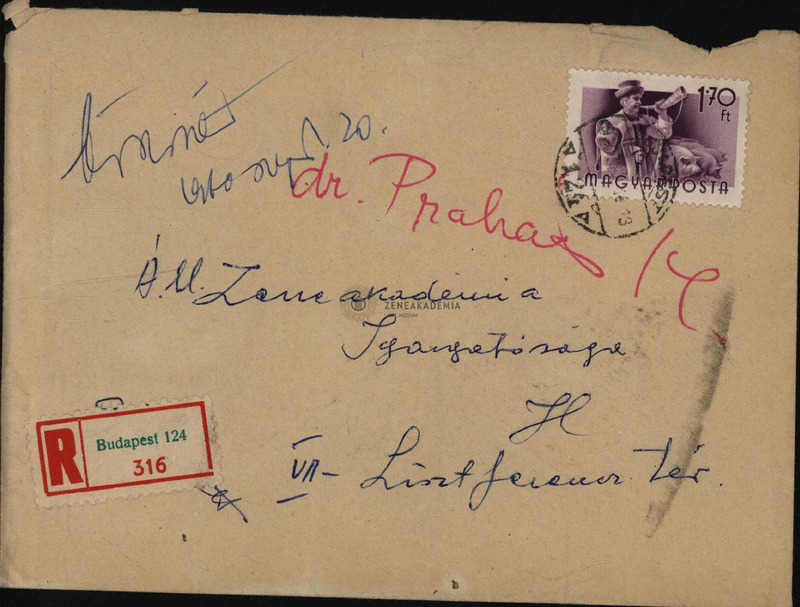 1·70
ft
MAGYAR POSTA
20.
dr. Prahács
Áll. Zeneakadémia
ZENEAKADÉMIA
Igazgatósága
R
Budapest 124
316
VI- Liszt Ferenc tér.